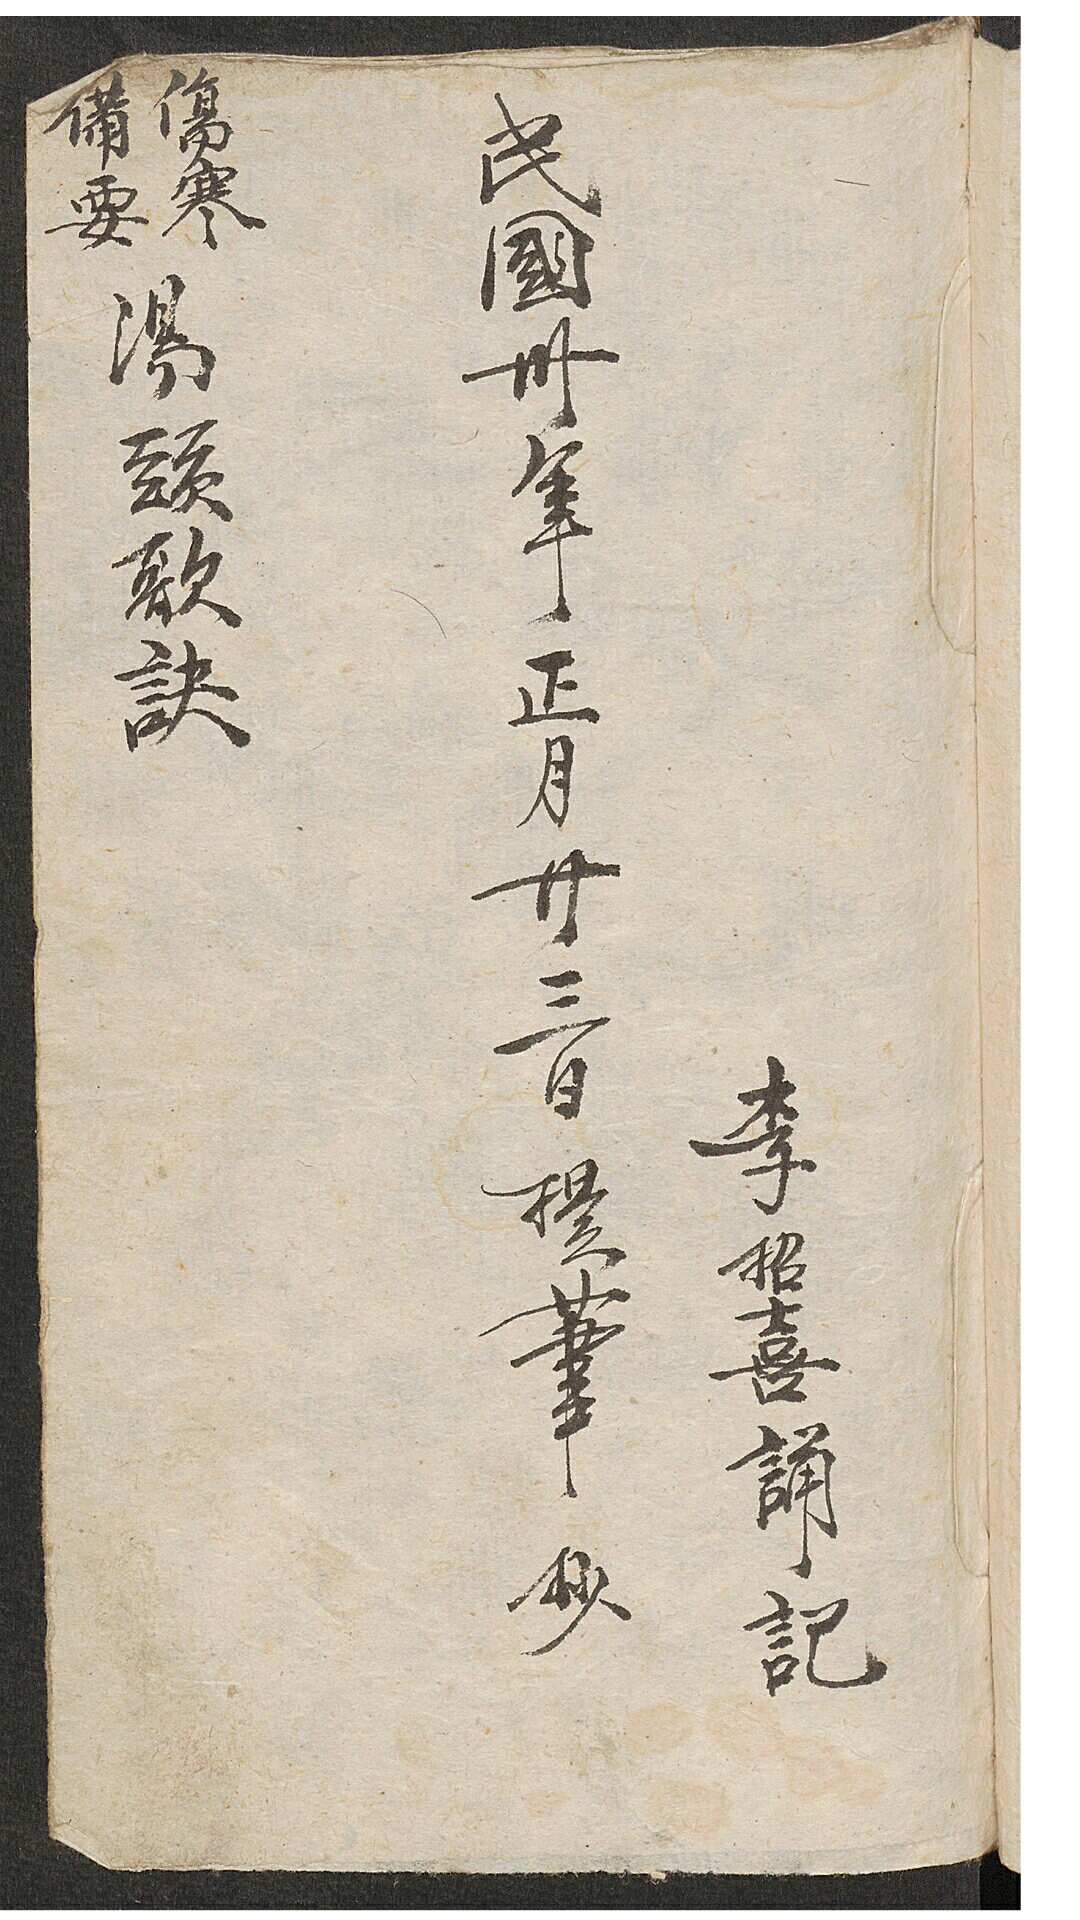 李招喜誦記
民國卅年正月廿三日提筆抄
傷寒
備要
湯頭歌訣